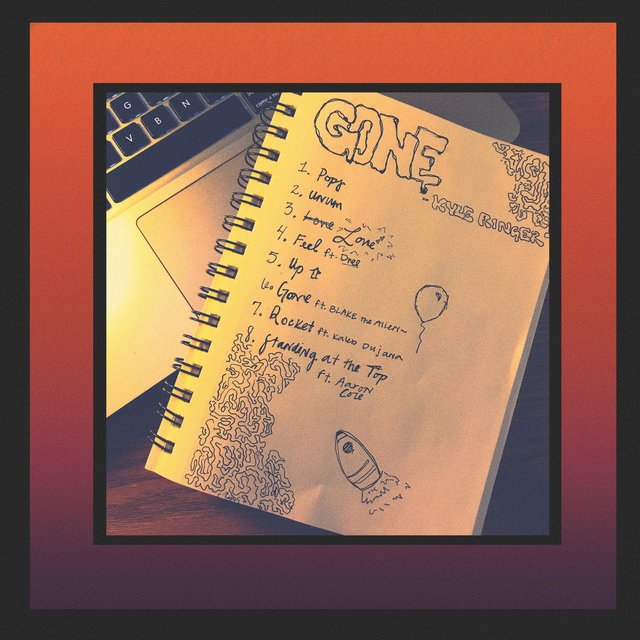 G
V B N
GONE
- KYLE RINGER -
1. Pops
2. Unum
3. Love Love
4. Feel ft. Dree
5. Up
6. Gone ft. BLAKE the Alien~
7. Rocket ft. Kaleb Dujana
8. Standing at the Top
ft. Aaron
Cole